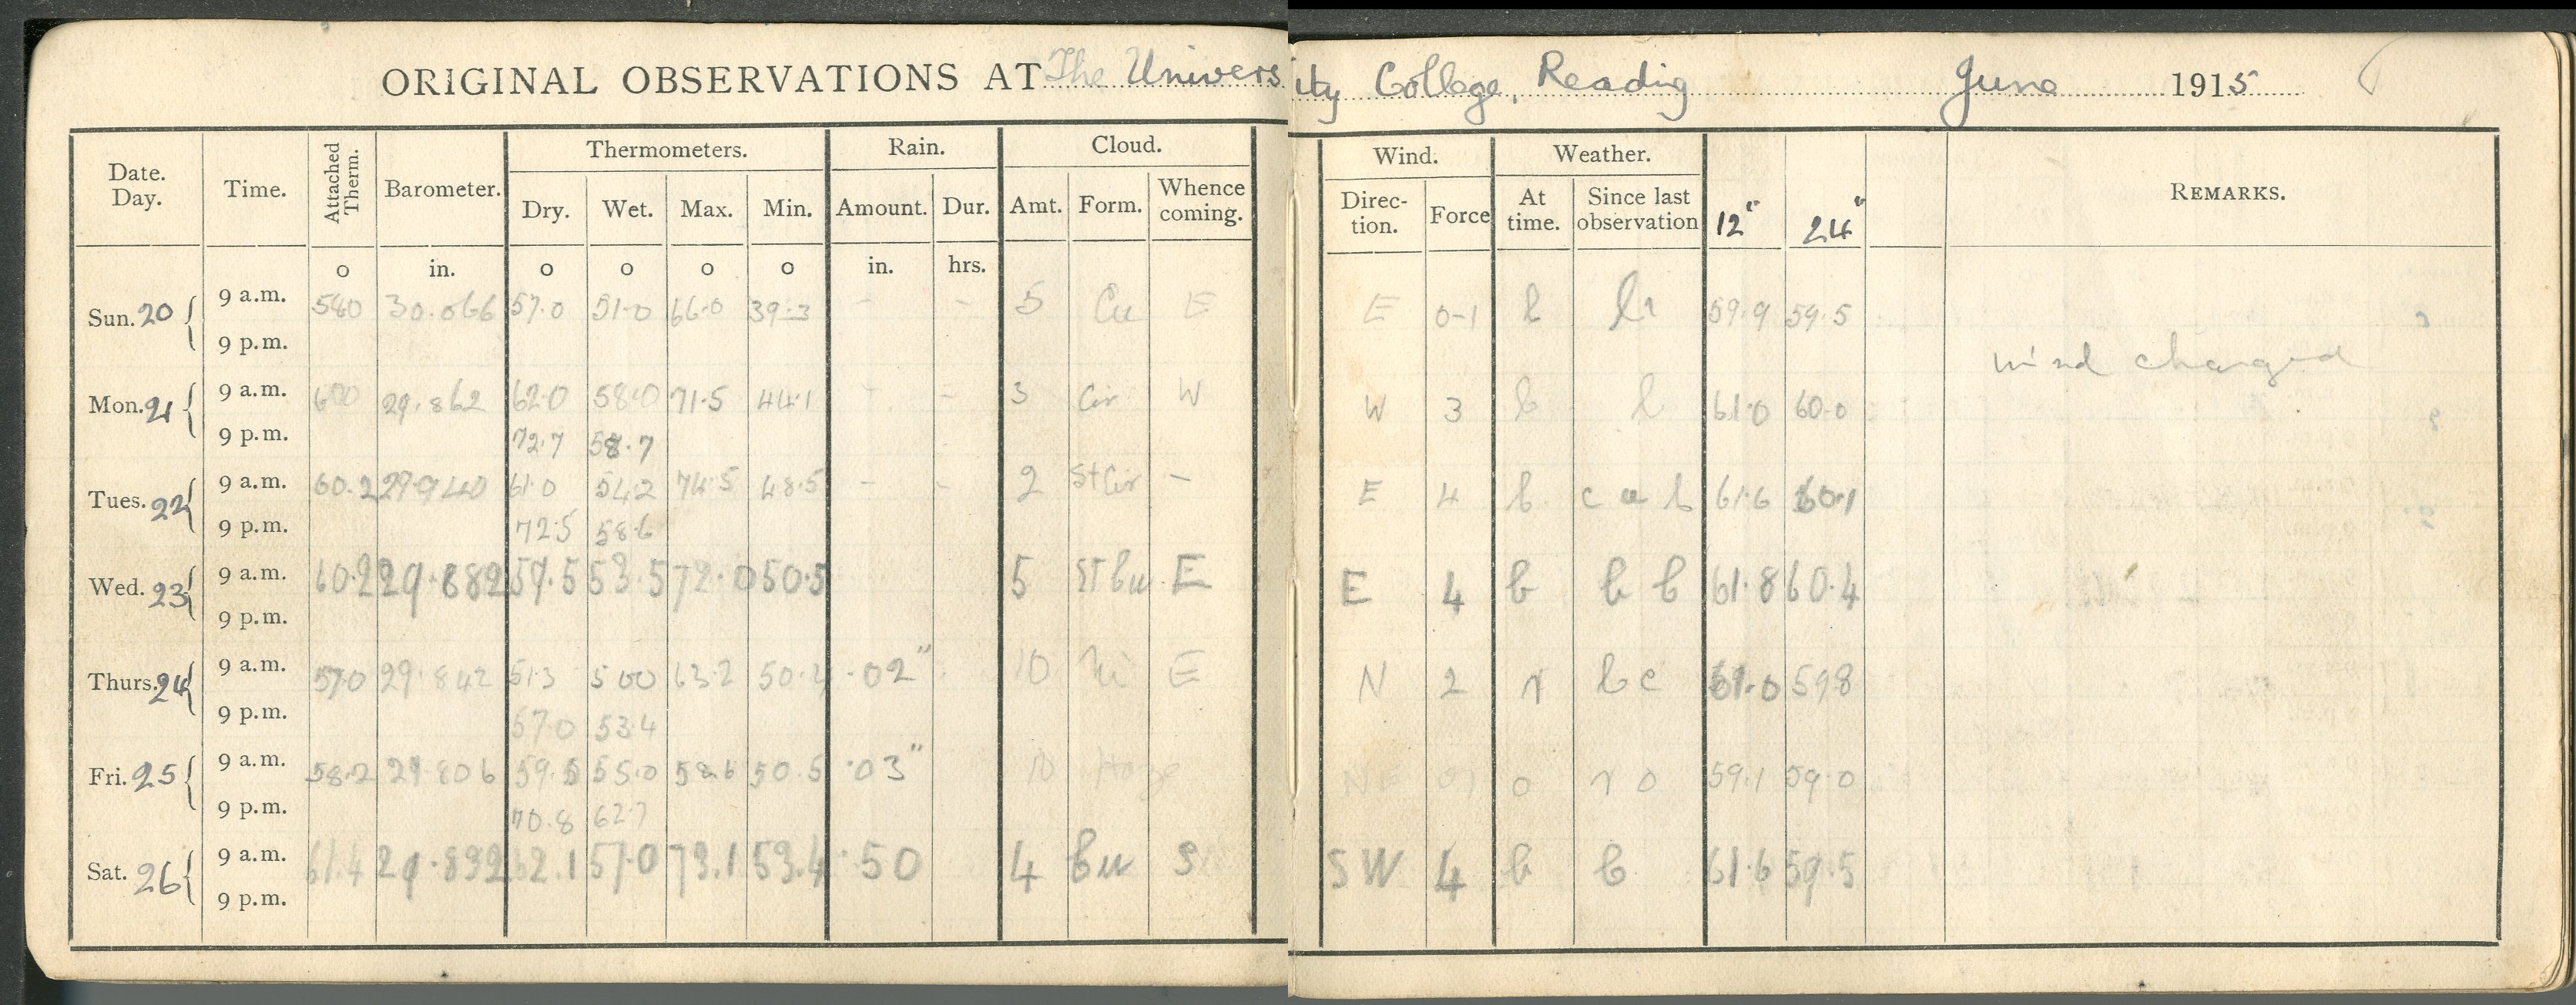 ORIGINAL OBSERVATIONS AT The University College, Reading June 1915
Thermometers. Rain. Cloud. Wind. Weather.
Date. Day. Time. Attached Therm. Barometer. Dry. Wet. Max. Min. Amount. Dur. Amt. Form. Whence coming. Direc-tion. Force At time. Since last observation 12" 24" REMARKS.
o in. o o o o in. hrs.
Sun. 20 9 a.m. 58.0 30.066 57.0 51.0 66.0 39.3 - - 5 Cu E E 0-1 b 59.9 59.5
9 p.m.
wind changed
Mon. 21 9 a.m. 60.0 29.862 62.0 58.0 71.5 44.1 - - 3 Cir W W 3 b b 61.0 60.0
9 p.m. 72.7 58.7
Tues. 22 9 a.m. 60.2 29.940 61.0 54.2 74.5 48.5 - - 2 St Cir - E 4 b c b 61.6 60.1
9 p.m. 72.5 58.6
Wed. 23 9 a.m. 60.2 29.882 59.5 53.5 72.0 50.5 5 St Cu E E 4 b b b 61.8 60.4
9 p.m.
Thurs. 24 9 a.m. 57.0 29.842 51.3 50.0 63.2 .02" 10 Ni E N 2 r b c 61.0 59.8
9 p.m. 67.0 53.4
Fri. 25 9 a.m. 58.2 29.806 59.5 55.0 58.6 50.5 .03" 10 Haze NE o r o 59.1 59.0
9 p.m. 70.8 62.7
Sat. 26 9 a.m. 61.4 29.892 62.1 57.0 73.1 53.4 .50 4 Cu S SW 4 b b 61.6 59.5
9 p.m.